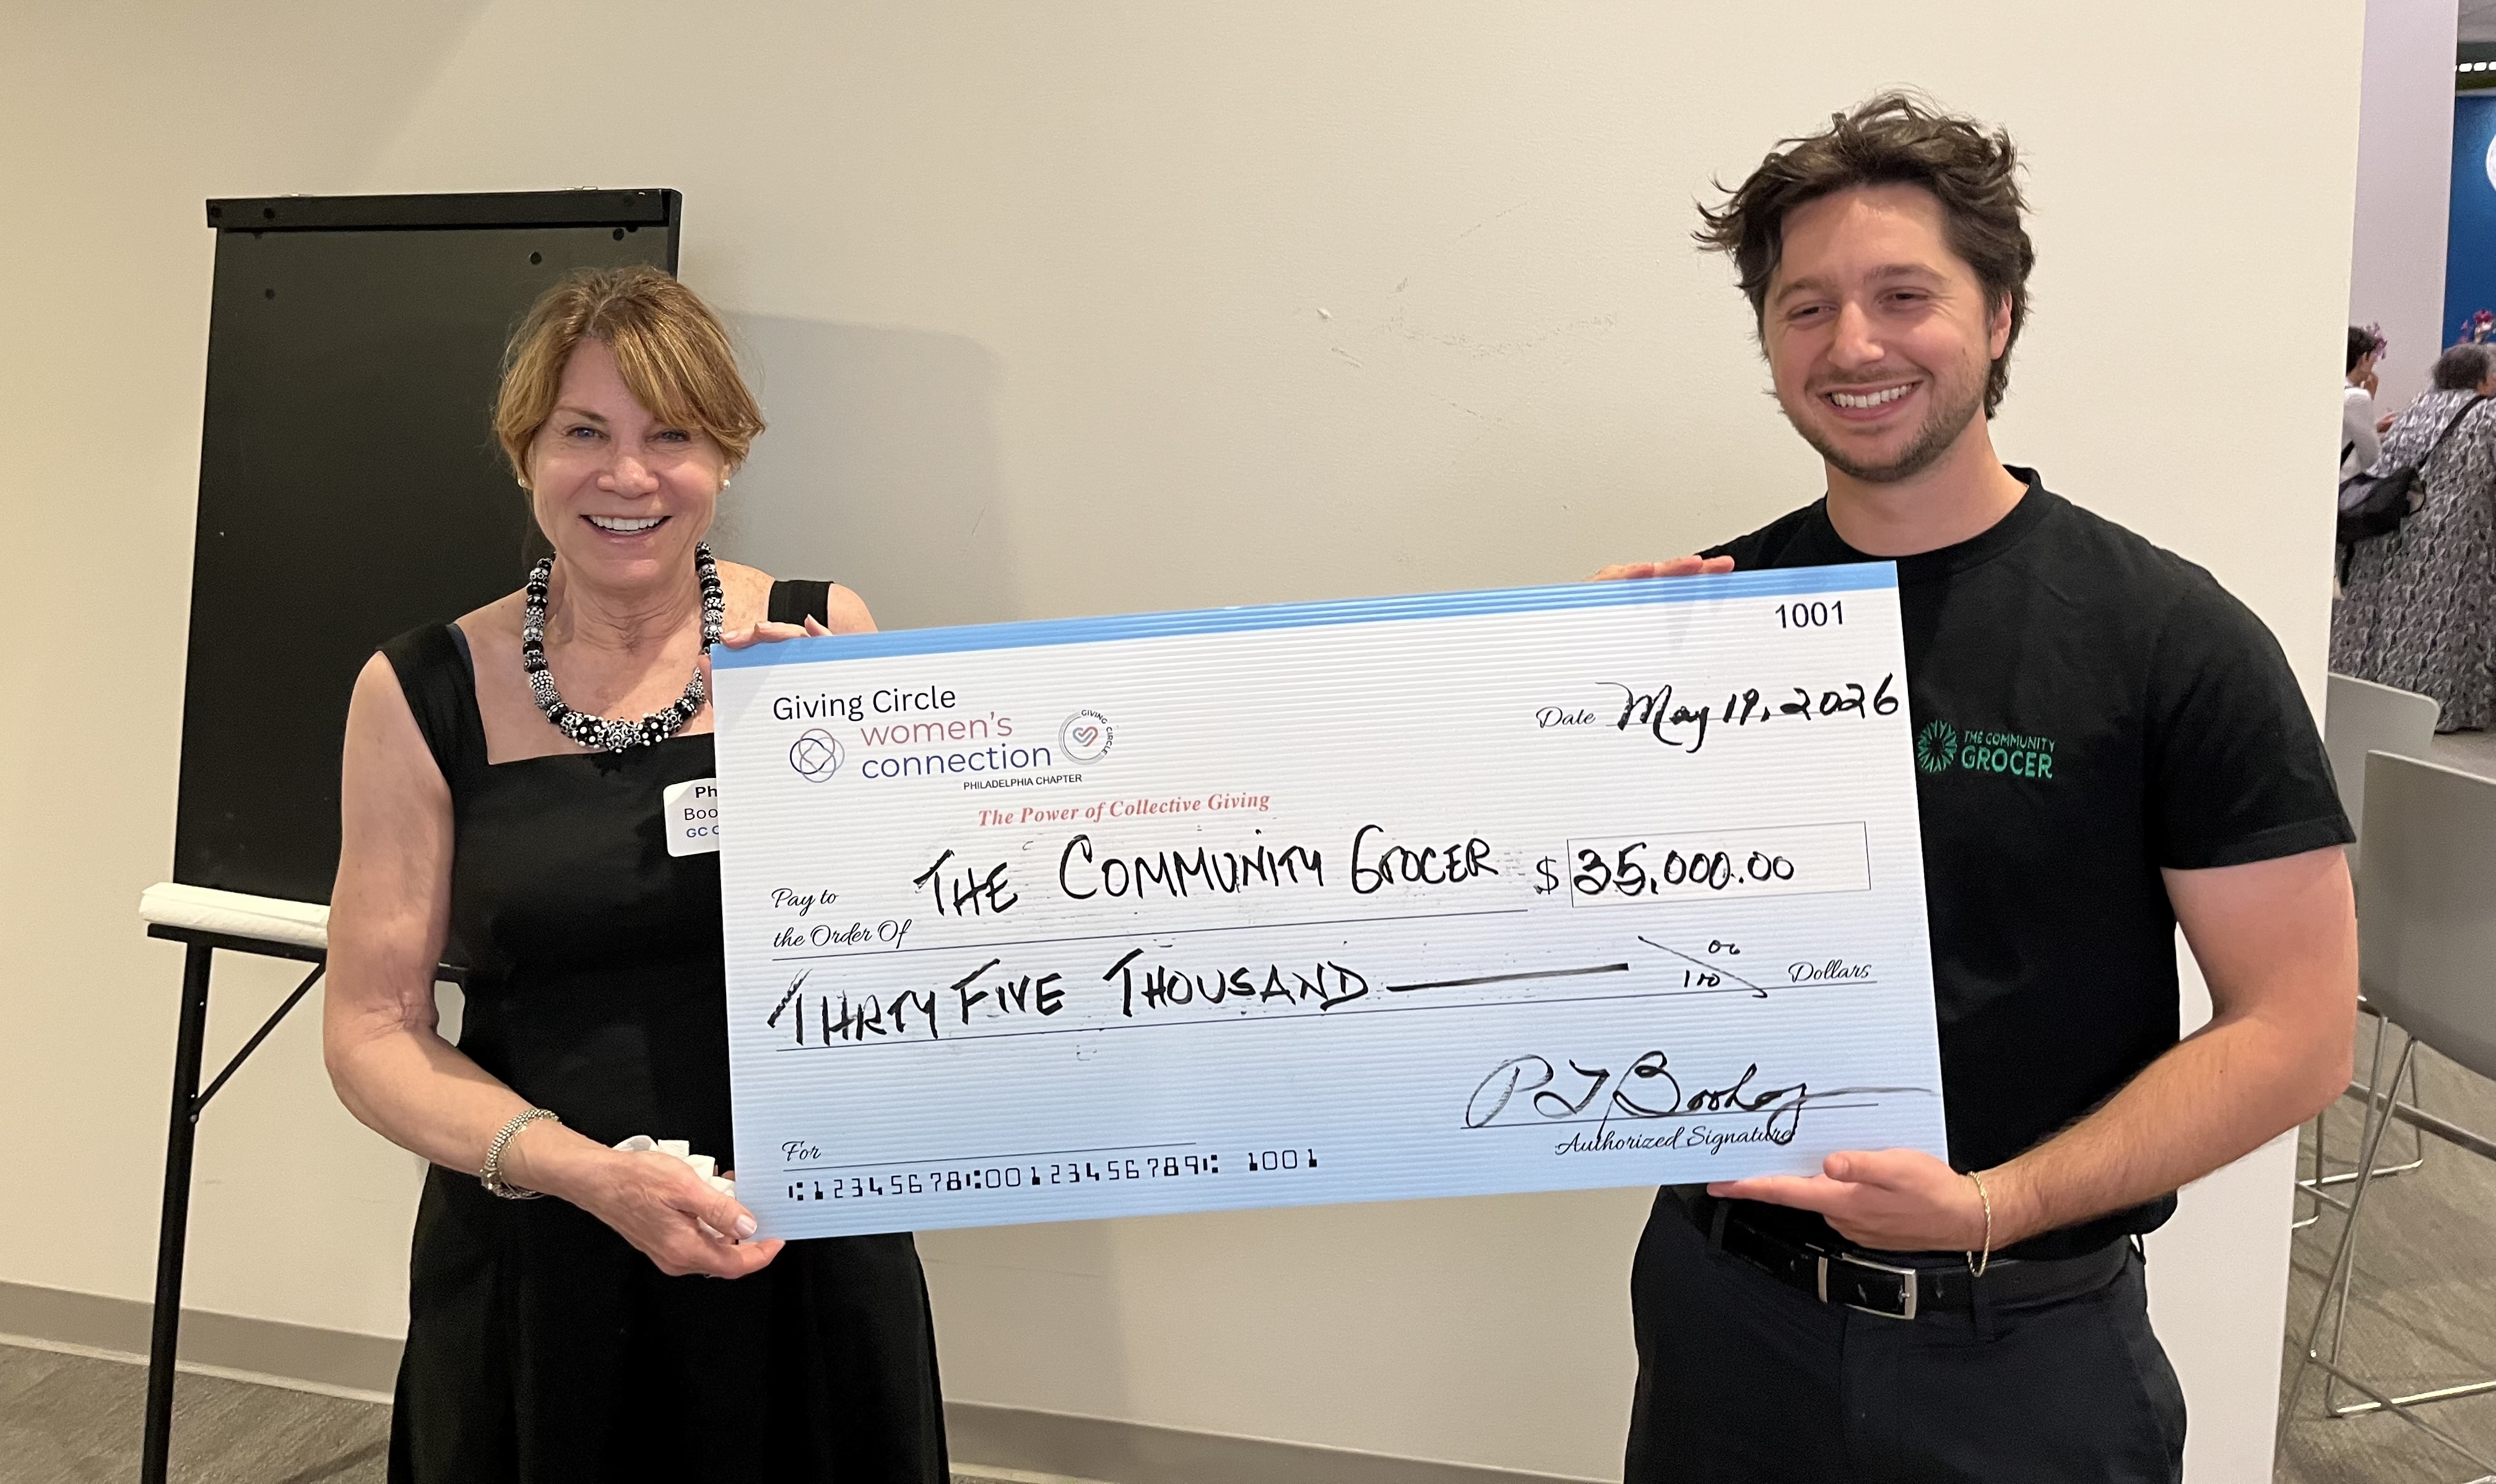 1001
Giving Circle
women's
connection
GIVING CIRCLE
PHILADELPHIA CHAPTER
The Power of Collective Giving
Date May 19, 2026
Pay to
the Order Of THE COMMUNITY GROCER $ 35,000.00
THIRTY FIVE THOUSAND 00/100 Dollars
P J Booker
Authorized Signature
For
⑆12345678⑆00123456789⑆ 1001
Ph
Boo
GC
THE COMMUNITY
GROCER